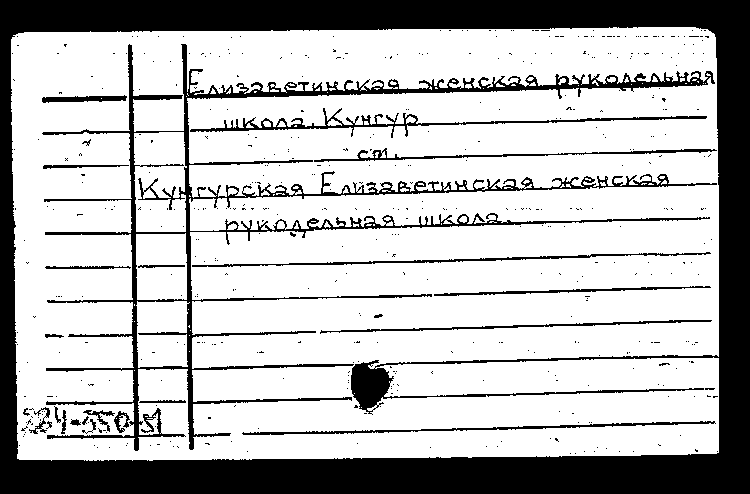 Елизаветинская женская рукодельная
школа. Кунгур
см.
Кунгурская Елизаветинская женская
рукодельная школа.
284-550-51